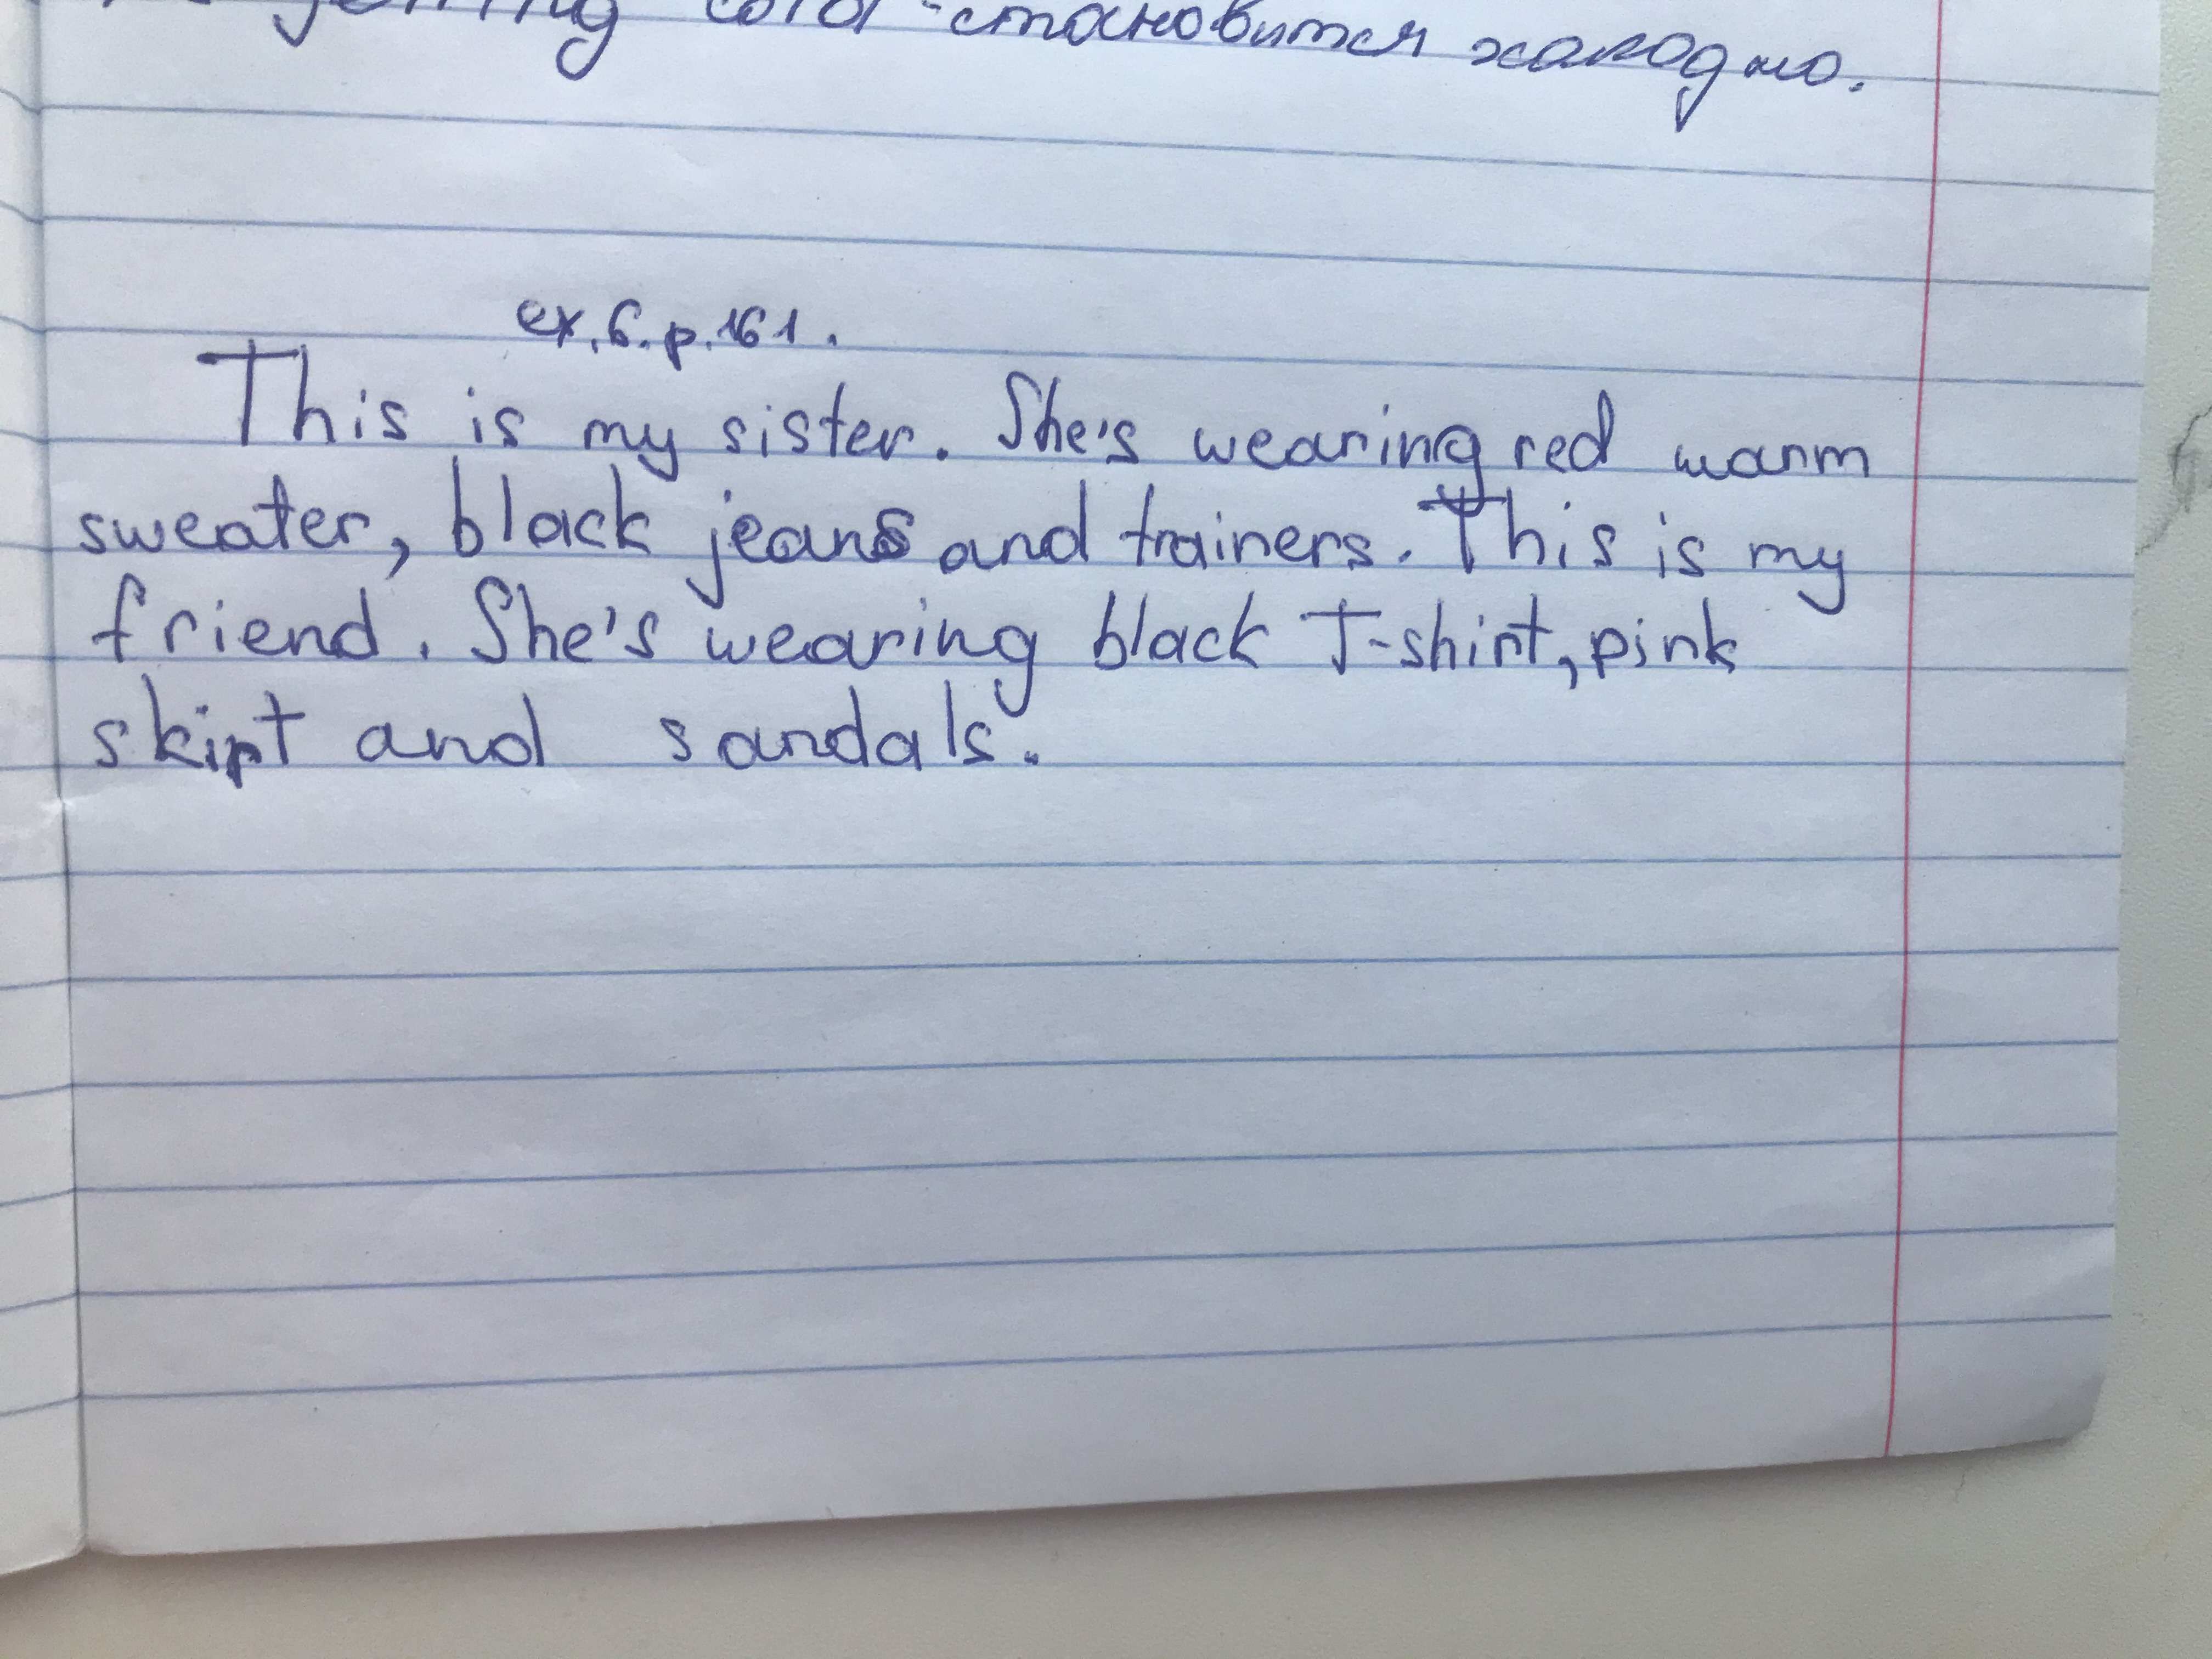 getting cold - становится холодно.
ex. 6. p. 161.
This is my sister. She's wearing red warm
sweater, black jeans and trainers. This is my
friend. She's wearing black T-shirt, pink
skirt and sandals.